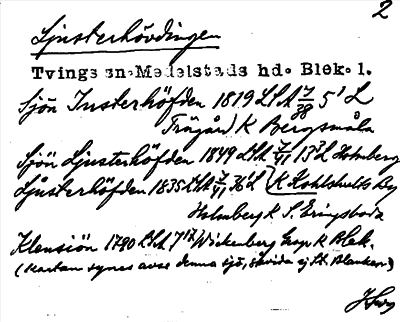 2
Ljusterhövdingen
Tvings sn. Medelstads hd. Blek. l.
Sjön Insterhöfden 1819 LSA 7/38 5' L
Trägård K Bergsmåla
Sjön Ljusterhöfden 1849 LSA 7/41 13'L Holmberg
Ljusterhöfden 1835 LSA 7/41 36 L (K Kohlshults By
Holmberg K S. Eringsboda
Klensiön 1780 LSA 7 Wickenberg Geogr K Blek.
(Kartan synes avse denna sjö, skrida ej St. Blanken)